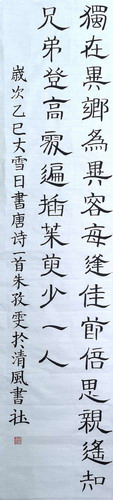 獨在異鄉為異客每逢佳節倍思親遙知
兄弟登高處遍插茱萸少一人
歲次乙巳大雪日書唐诗一首朱孜雯於清風書社